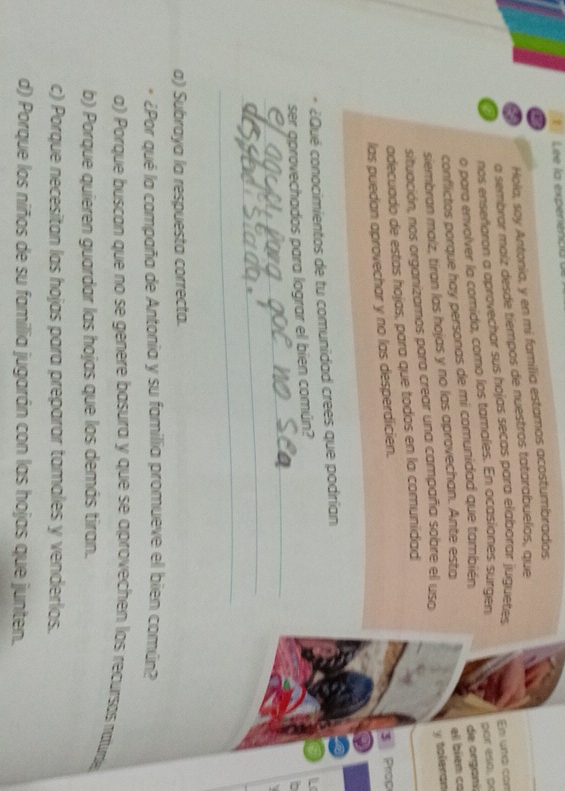 1 Lee la experiencia de
Hola, soy Antonia, y en mi familia estamos acostumbrados
a sembrar maíz desde tiempos de nuestros tatarabuelos, que
nos enseñaron a aprovechar sus hojas secas para elaborar juguetes
o para envolver la comida, como los tamales. En ocasiones surgen
conflictos porque hay personas de mi comunidad que también
siembran maíz, tiran las hojas y no las aprovechan. Ante esta
situación, nos organizamos para crear una campaña sobre el uso
adecuado de estas hojas, para que todos en la comunidad
las puedan aprovechar y no las desperdicien.
• ¿Qué conocimientos de tu comunidad crees que podrían
ser aprovechados para lograr el bien común?
para que no sea
a) Subraya la respuesta correcta.
• ¿Por qué la campaña de Antonia y su familia promueve el bien común?
a) Porque buscan que no se genere basura y que se aprovechen los recursos
b) Porque quieren guardar las hojas que los demás tiran.
c) Porque necesitan las hojas para preparar tamales y venderlos.
d) Porque los niños de su familia jugarán con las hojas que junten.
En una
por eso,
de
el bien
y
3